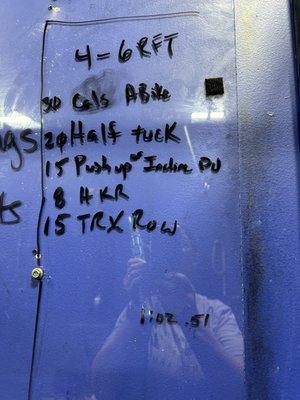 4 = 6 RFT
30 Cals A Bike
20 Half tuck
15 Push up Incline PU
8 HKR
15 TRX Row
1:02.51